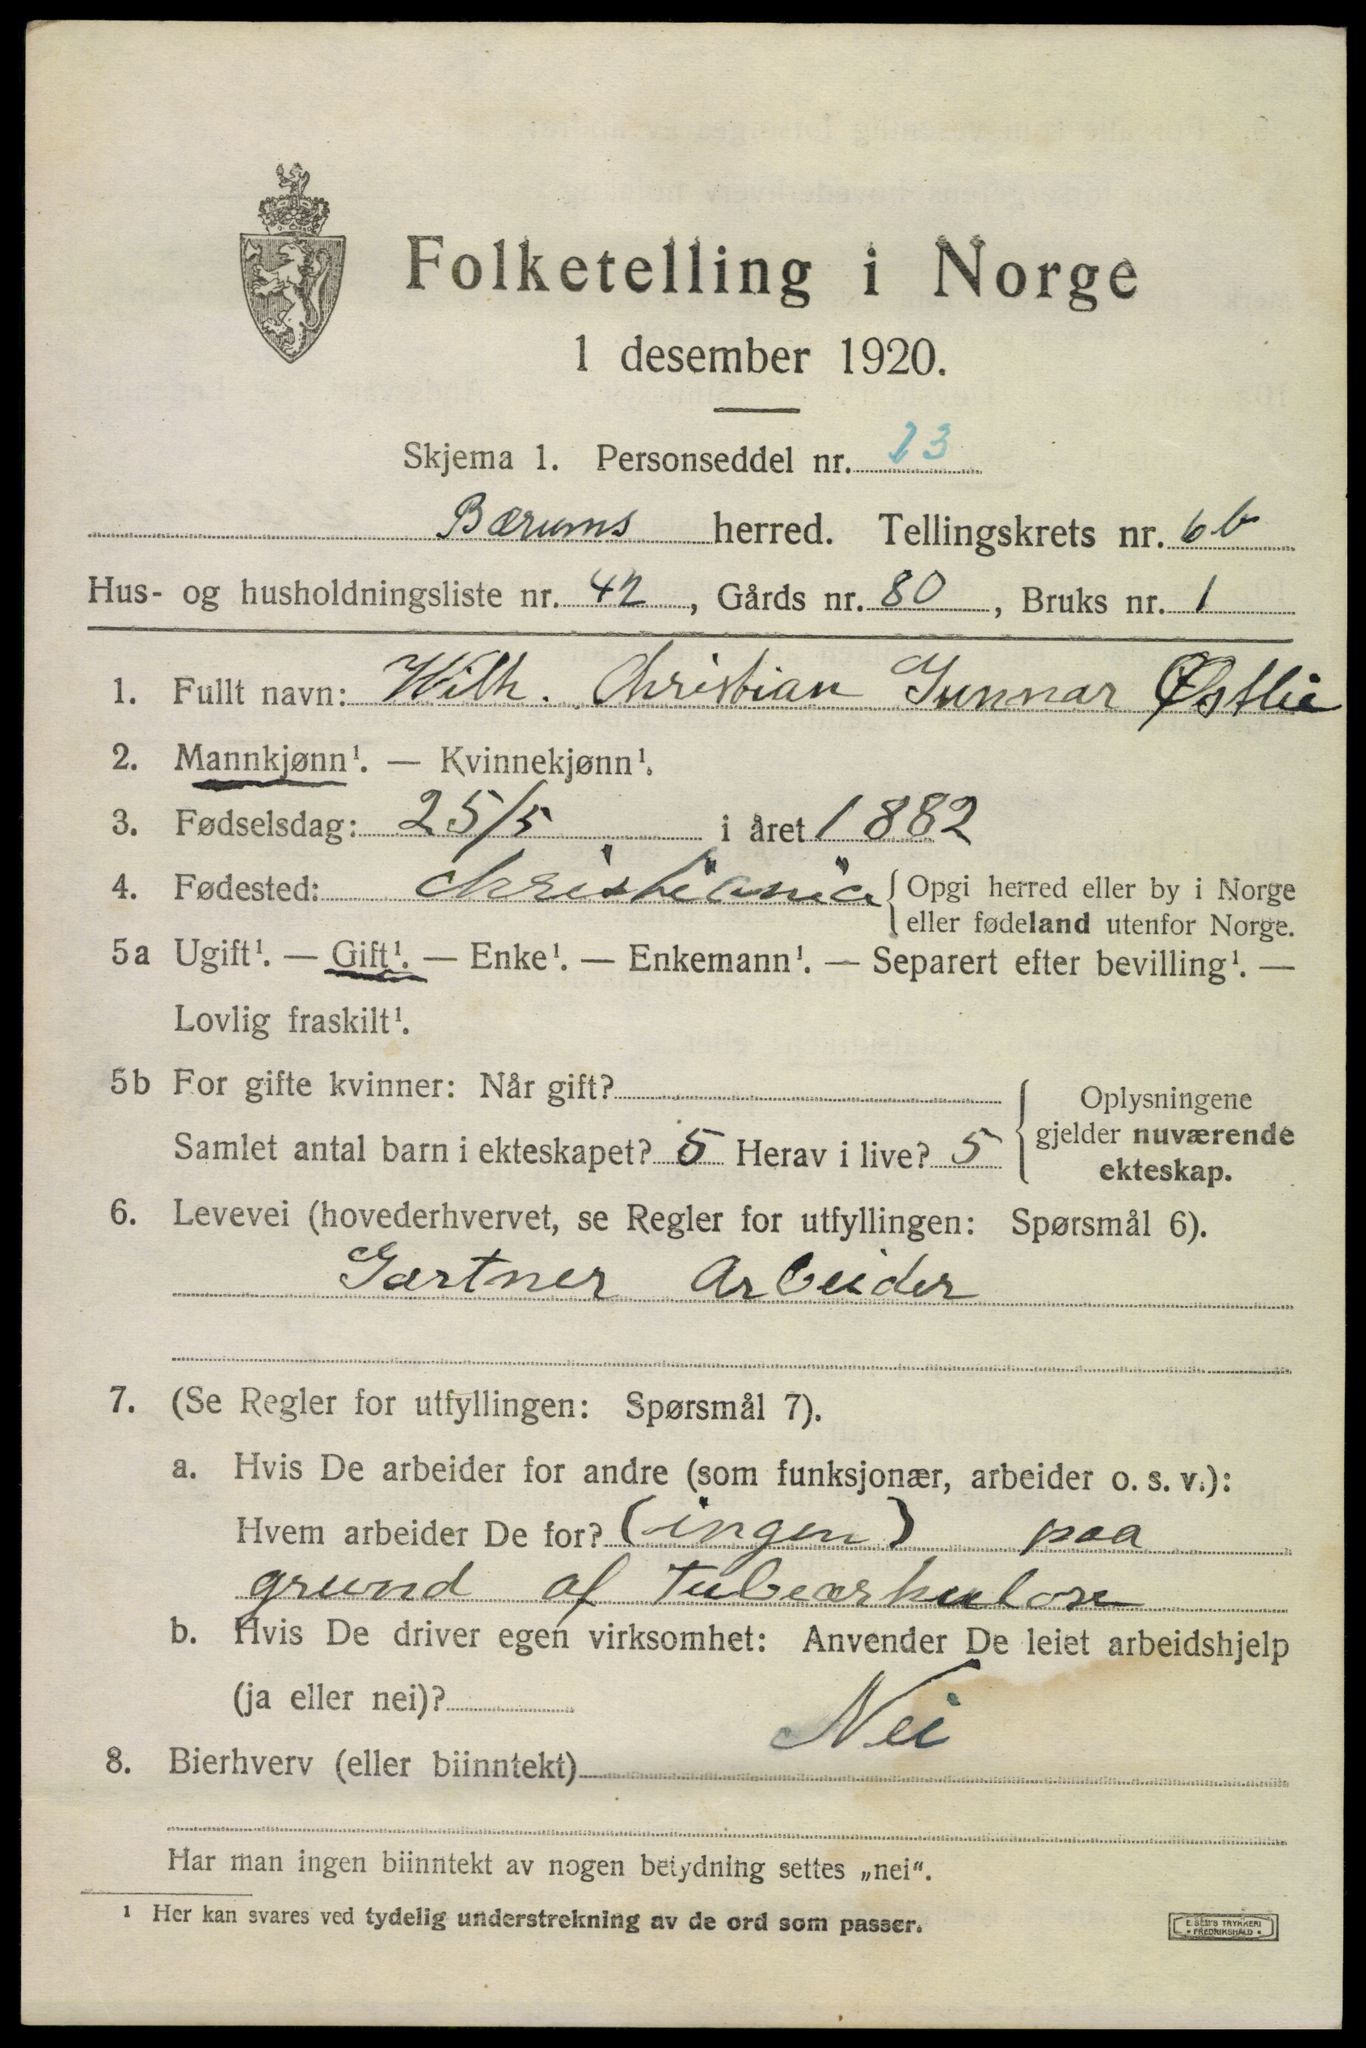 Folketelling i Norge
1 desember 1920.
Skjema 1. Personseddel nr. 23
Bærums herred. Tellingskrets nr. 6b
Hus- og husholdningsliste nr. 42, Gårds nr. 80, Bruks nr. 1
1. Fullt navn: Wilh. Christian Gunnar Østlie
2. Mannkjønn¹. — Kvinnekjønn¹.
3. Fødselsdag: 25/5 i året 1882
4. Fødested: Christiania { Opgi herred eller by i Norge
eller fødeland utenfor Norge.
5a Ugift¹. — Gift¹. — Enke¹. — Enkemann¹. — Separert efter bevilling¹. —
Lovlig fraskilt¹.
5b For gifte kvinner: Når gift?
Samlet antal barn i ekteskapet? 5 Herav i live? 5
Oplysningene
gjelder nuværende
ekteskap.
6. Levevei (hovederhvervet, se Regler for utfyllingen: Spørsmål 6).
Gartner Arbeider
7. (Se Regler for utfyllingen: Spørsmål 7).
a. Hvis De arbeider for andre (som funksjonær, arbeider o. s. v.):
Hvem arbeider De for? (ingen) paa
grund af tubeærkulose
b. Hvis De driver egen virksomhet: Anvender De leiet arbeidshjelp
(ja eller nei)?
8. Bierhverv (eller biinntekt) Nei
Har man ingen biinntekt av nogen betydning settes „nei“.
¹ Her kan svares ved tydelig understrekning av de ord som passer.
E. SEM'S TRYKKERI
• FREDRIKSHALD •